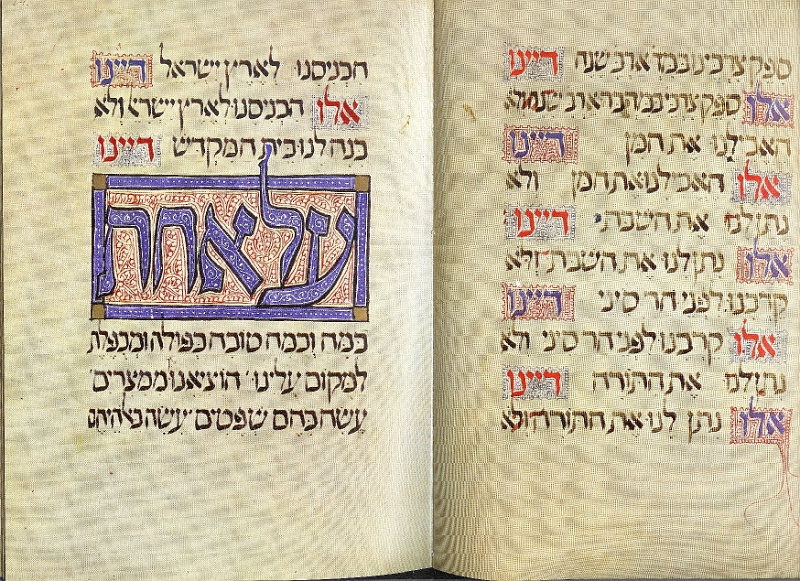 ספק צרכינו במד ארב שנה דיינו
אלו ספק צרכינו ארב שנה ולא
האכילנו את המן דיינו
אלו האכילנו את המן ולא
נתן לנו את השבת דיינו
אלו נתן לנו את השבת ולא
קרבנו לפני הר סיני דיינו
אלו קרבנו לפני הר סיני ולא
נתן לנו את התורה דיינו
אלו נתן לנו את התורה ולא
הכניסנו לארץ ישראל דיינו
אלו הכניסנו לארץ ישרא ולא
בנה לנו בית המקדש דיינו
על אחת
כמה וכמה טובה כפולה ומכפלת
למקום עלינו הוציאנו ממצרים
עשה בהם שפטים עשה באלהיהם